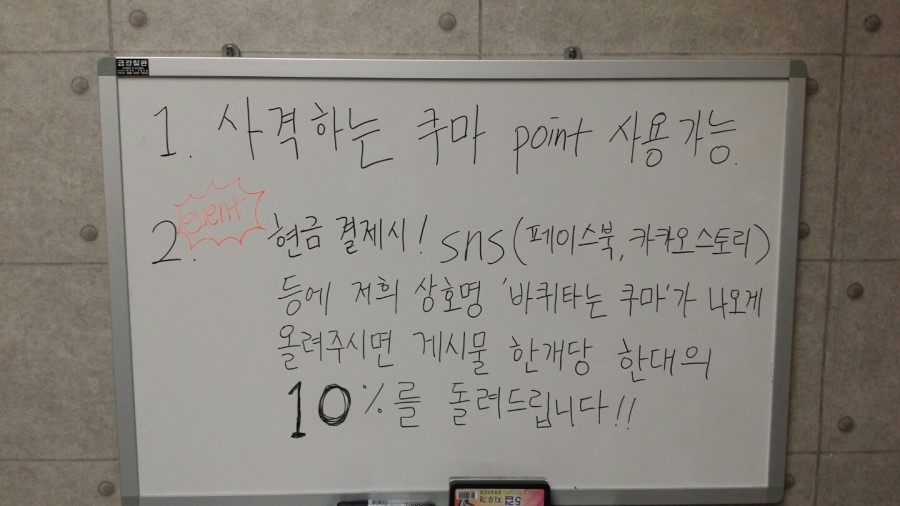 금강칠판
1. 사격하는 쿠마 point 사용가능.
event
2. 현금 결제시! sns(페이스북, 카카오스토리)
등에 저희 상호명 '바퀴타는 쿠마'가 나오게
올려주시면 게시물 한개당 한대의
10%를 돌려드립니다!!